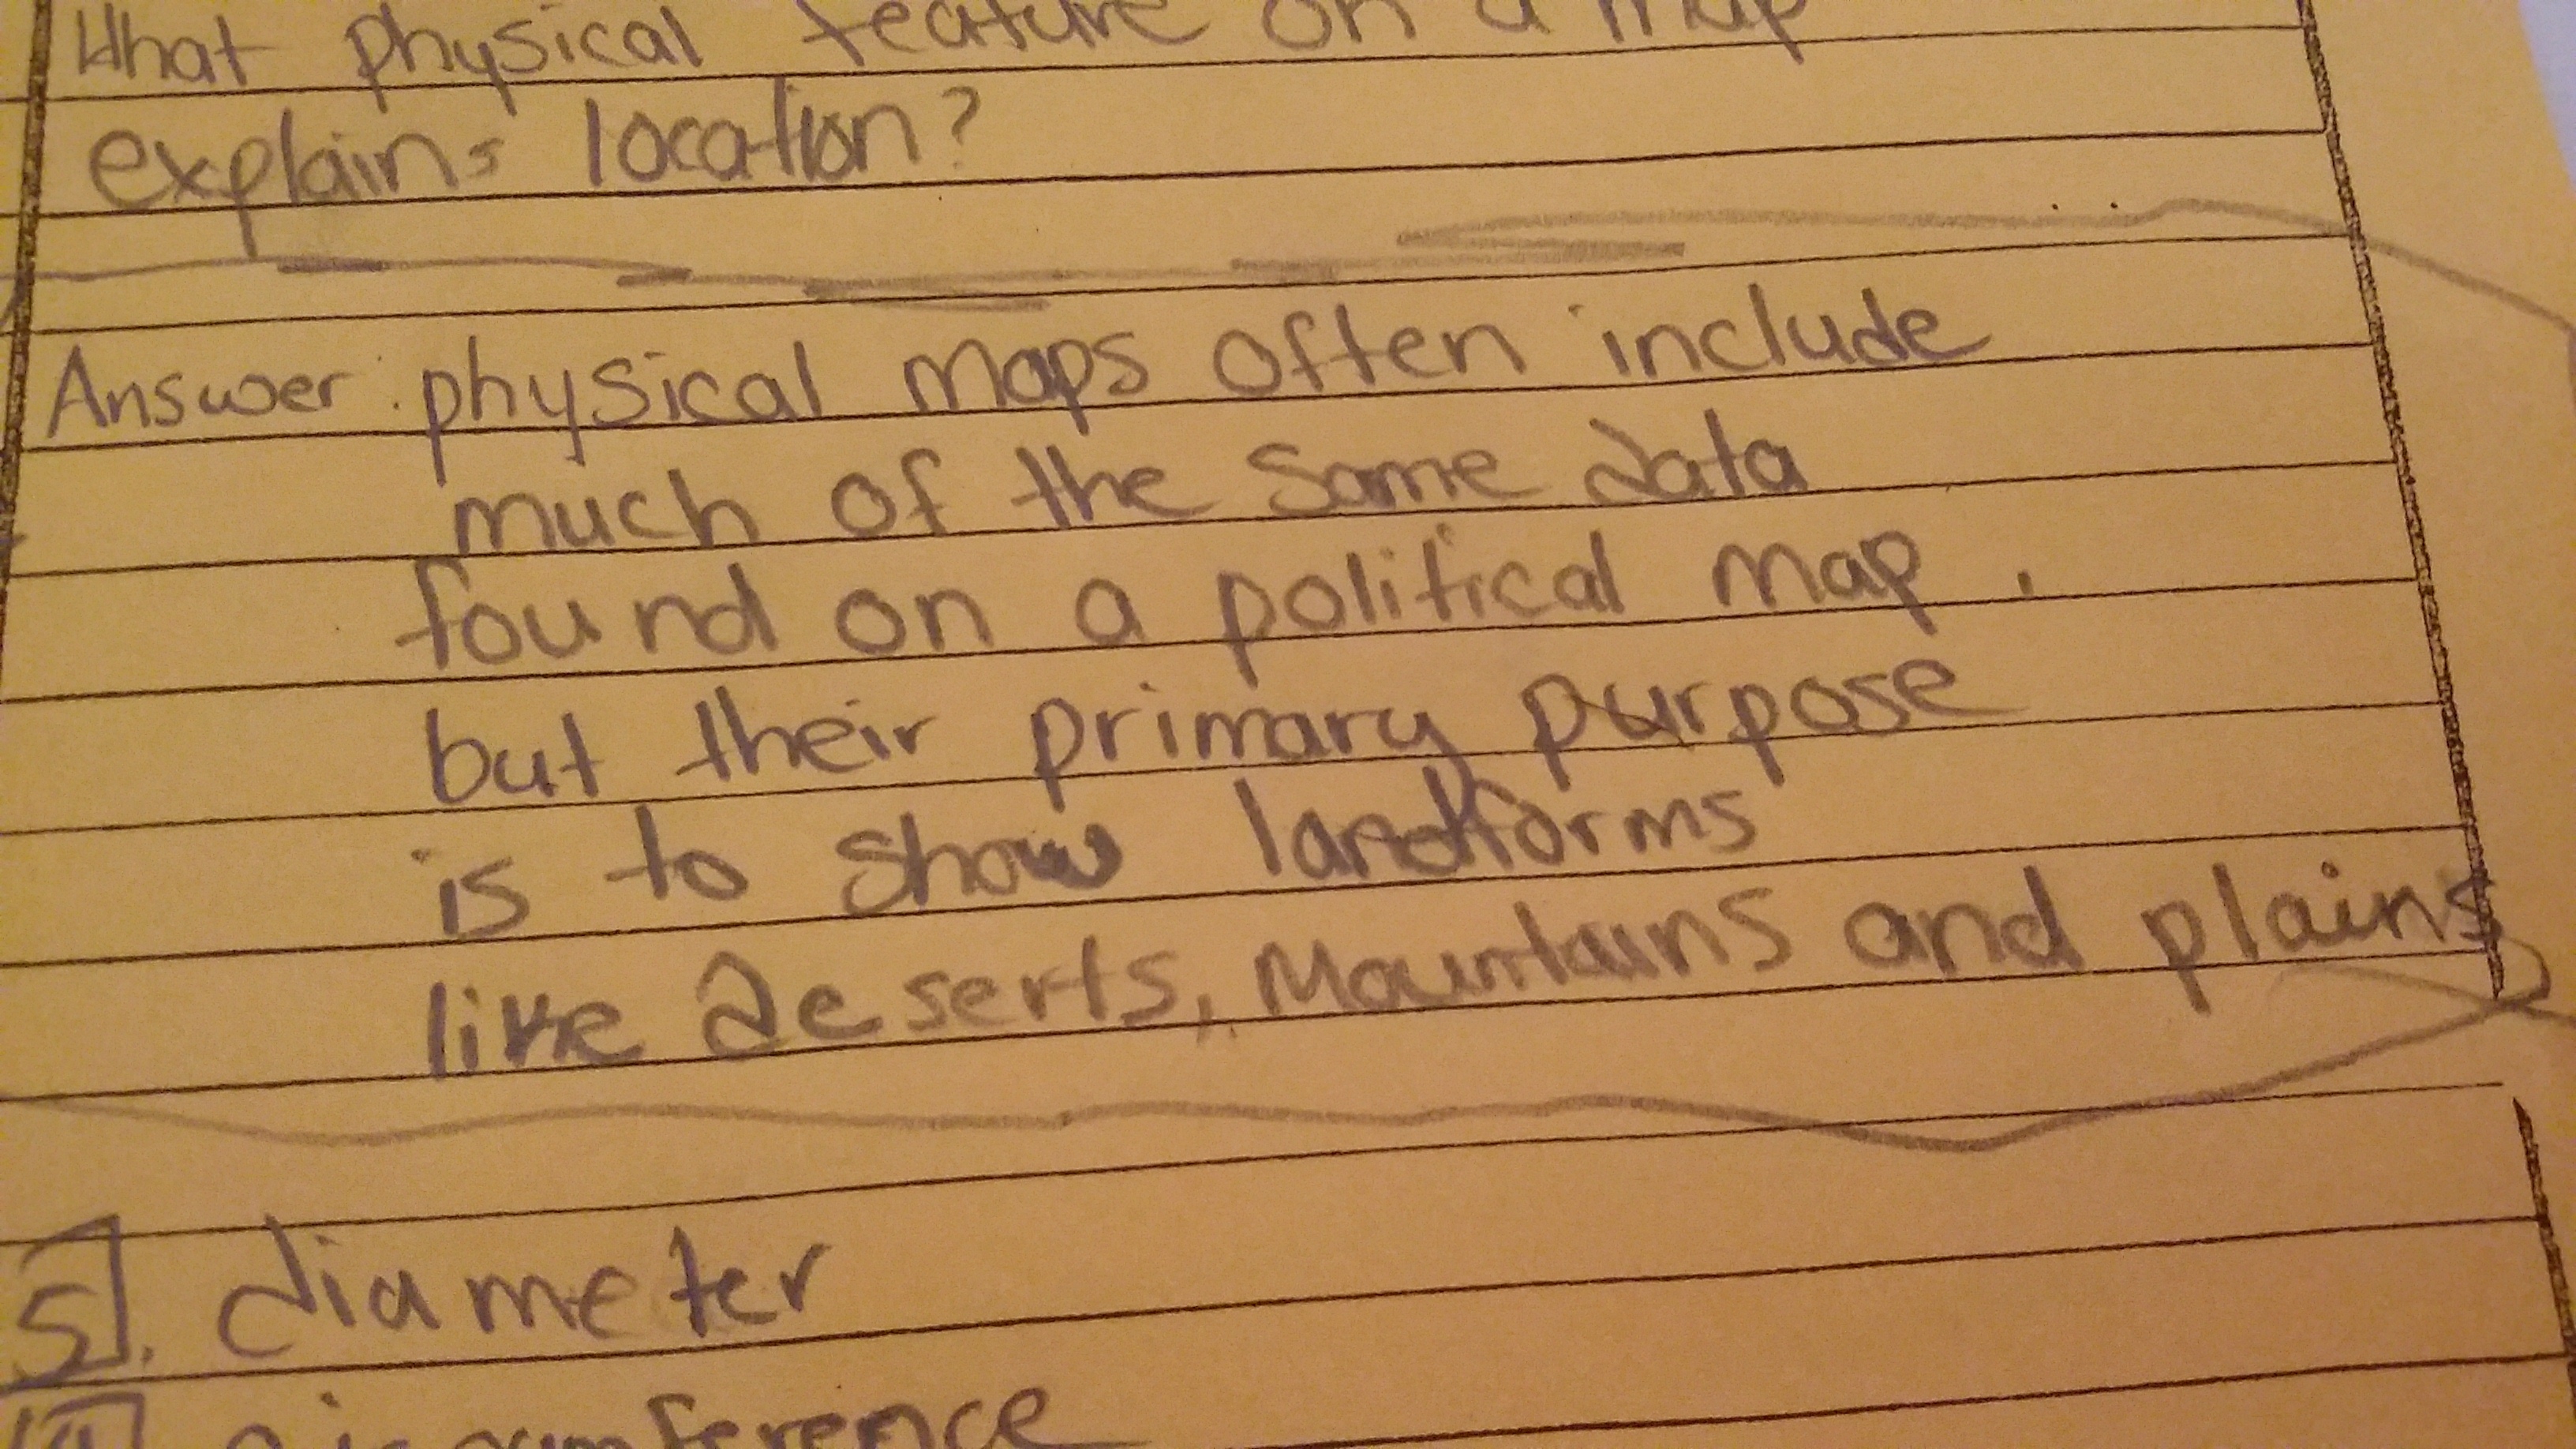 What physical feature on a map
explains location?
Answer: physical maps often include
much of the same data
found on a political map,
but their primary purpose
is to show landforms
like deserts, Mountains and plains
5. diameter
circumference